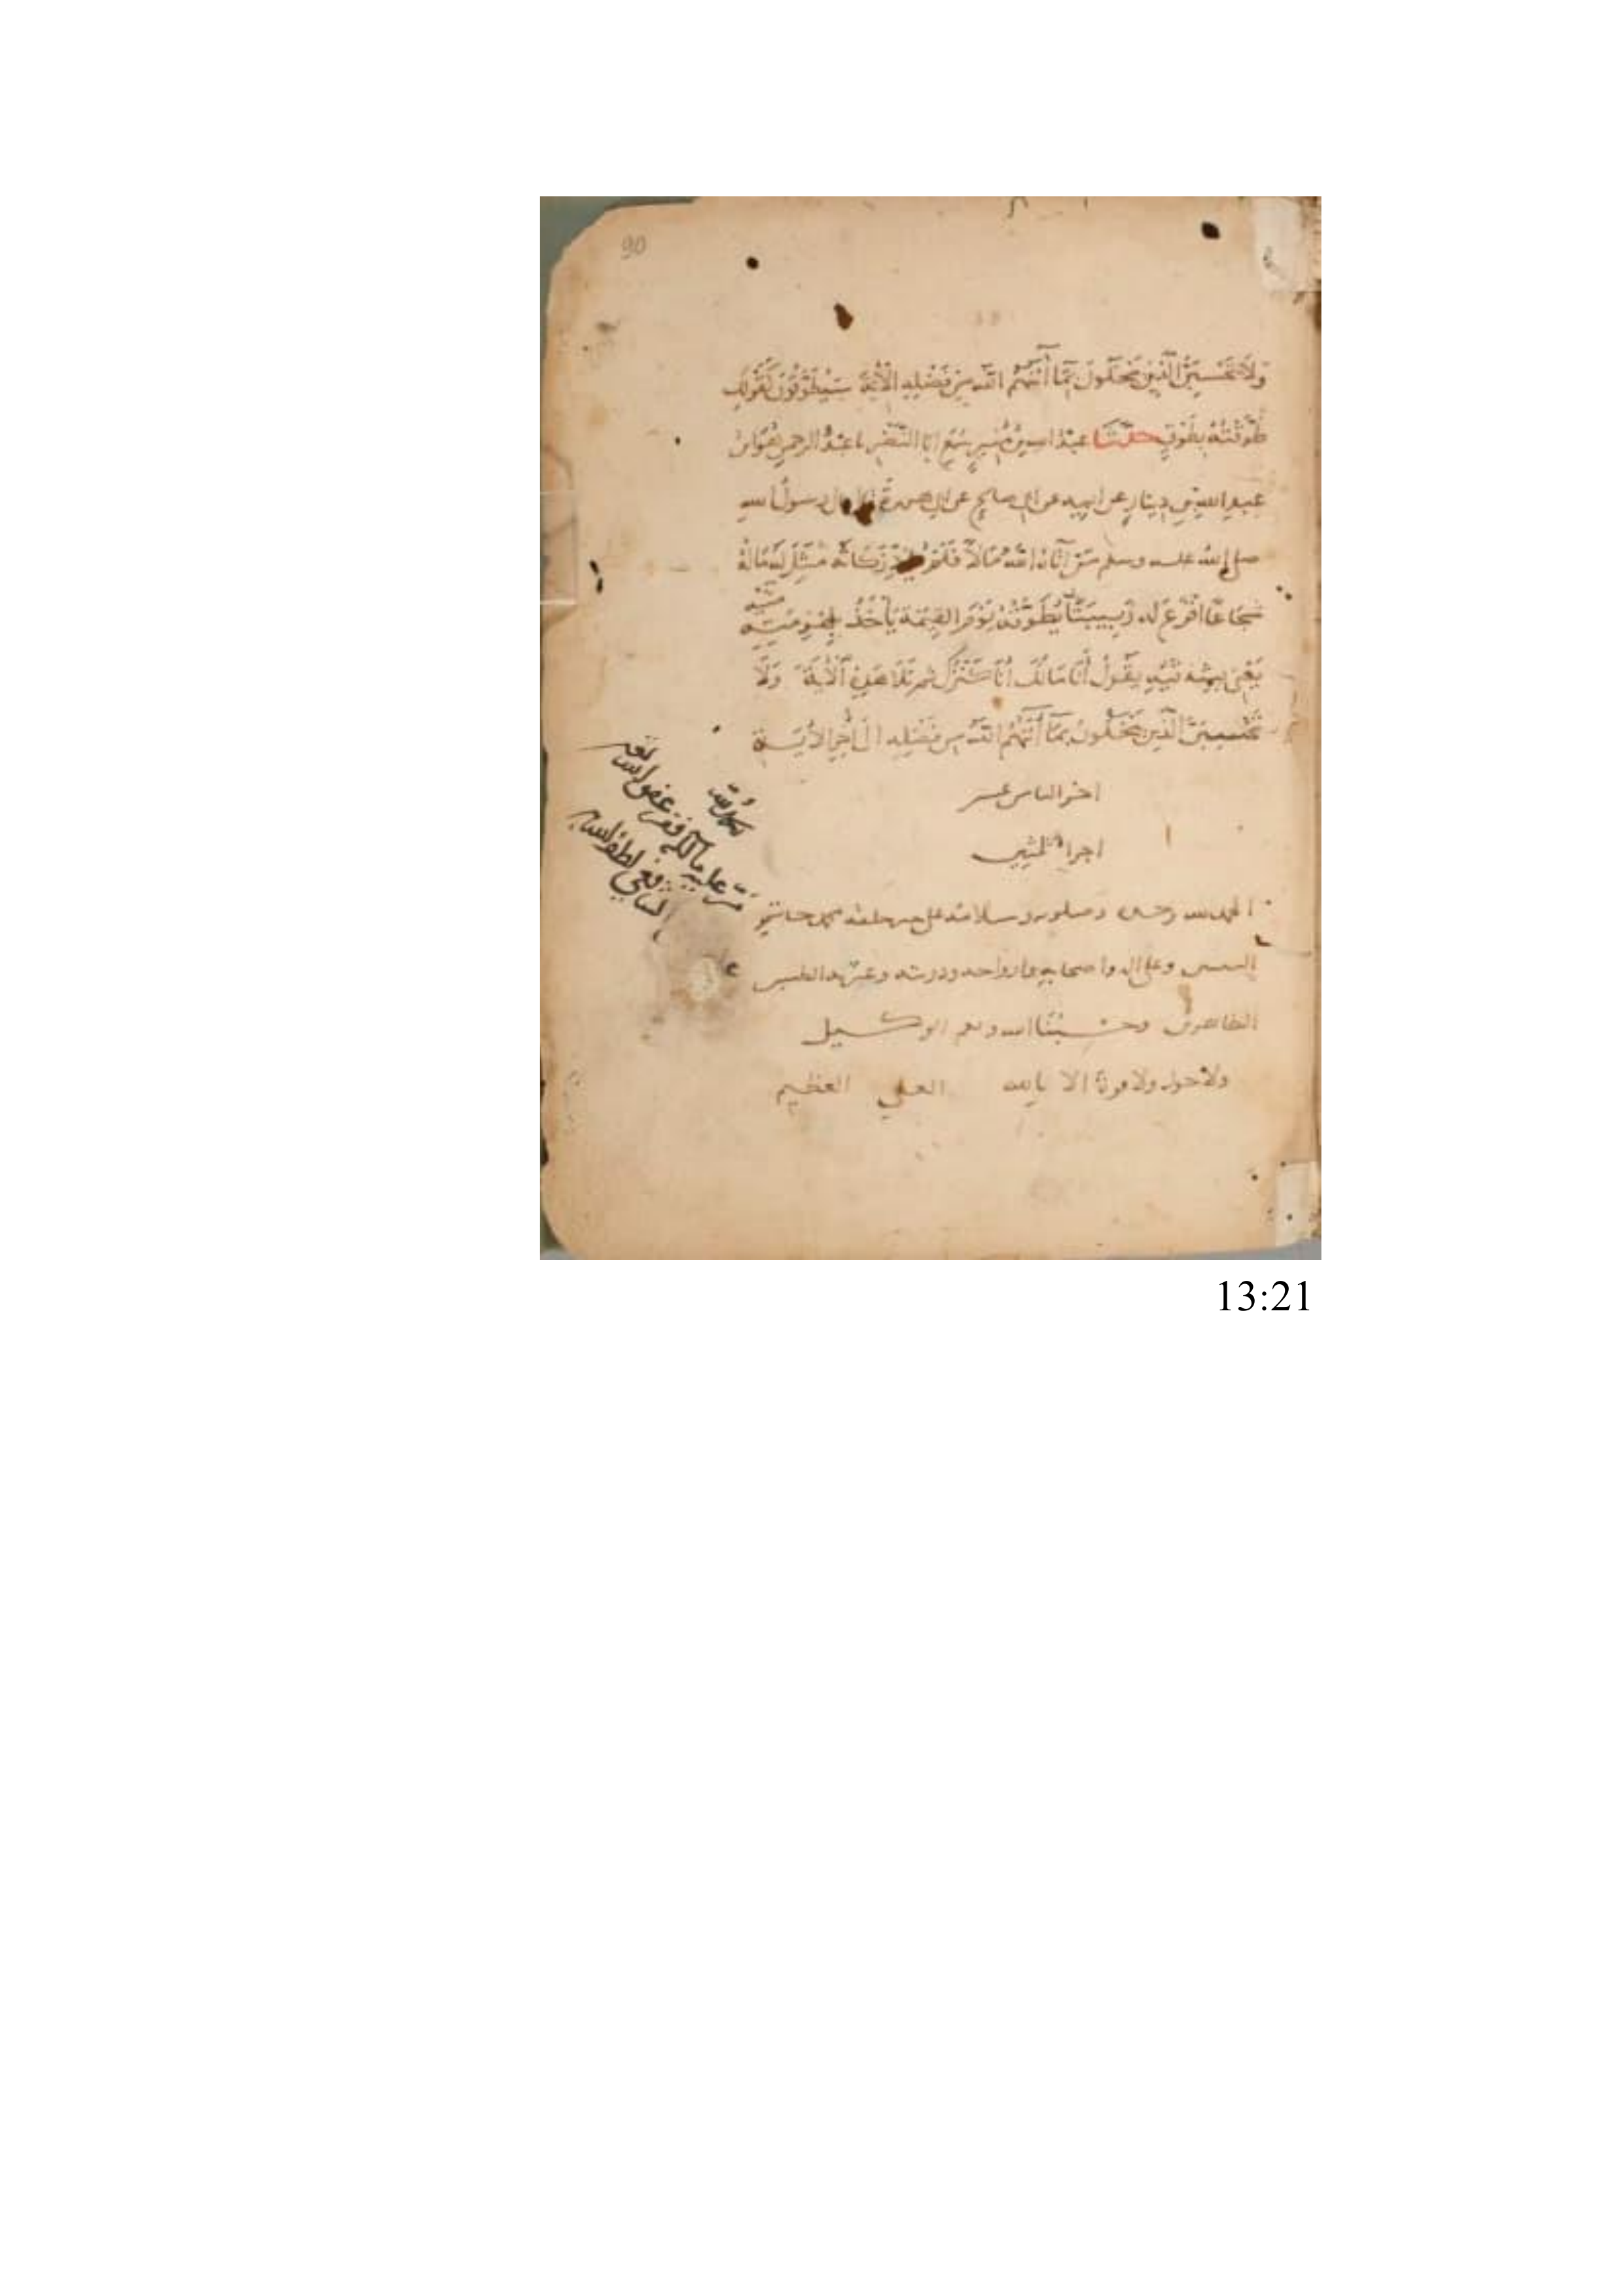 90
ولا تحسبن الذين يبخلون بما آتيهم الله من فضله الآية سيطوقون كقولك
طوقته بطوق حدثنا عبد الله بن منير سمع ابا النضر ما عبد الرحمن هو ابن
عبد الله بن دينار عن ابيه عن ابي صالح عن ابي هريرة قال قال رسول الله
صلى الله عليه وسلم من آتاه الله مالا فلم يؤد زكاته مثل له ماله
شجاعا اقرع له زبيبتان يطوقه يوم القيمة يأخذ بلهزمتيه
يعني بشدقيه يقول أنا مالك أنا كنزك ثم تلا هذه الآية ولا
تحسبن الذين يبخلون بما آتيهم الله من فضله الى آخر الآية
اخر الثامن عشر
من
الحمد لله وحده وصلوته وسلامه على خير خلقه محمد خاتم
النبيين وعلى اله واصحابه وازواجه وذريته وعترته الطيبين
الطاهرين وحسبنا الله ونعم الوكيل
ولا حول ولا قوة الا بالله العلي العظيم
مر عليه مالكه فقير عفو الله
الشافعي لطف الله به
13:21